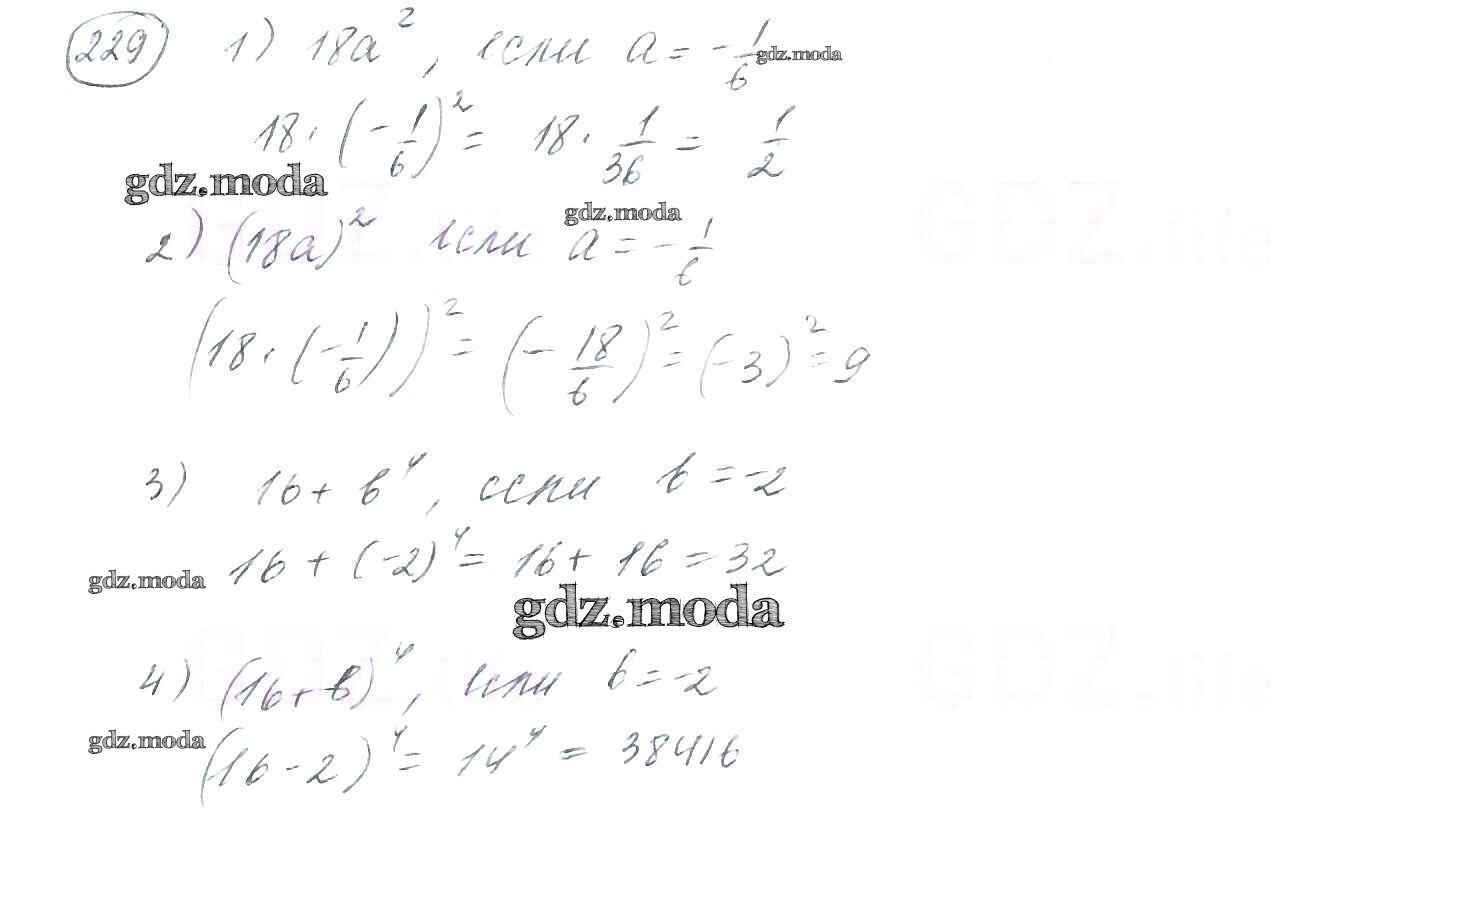 229 1) 18a², если a = -1/6
gdz.moda
18 · (-1/6)² = 18 · 1/36 = 1/2
gdz.moda
gdz.moda
2) (18a)² если a = -1/6
GDZ.life
(18 · (-1/6))² = (-18/6)² = (-3)² = 9
3) 16 + b⁴, если b = -2
16 + (-2)⁴ = 16 + 16 = 32
gdz.moda
gdz.moda
4) (16 + b)⁴, если b = -2
GDZ.life
gdz.moda
(16 - 2)⁴ = 14⁴ = 38416